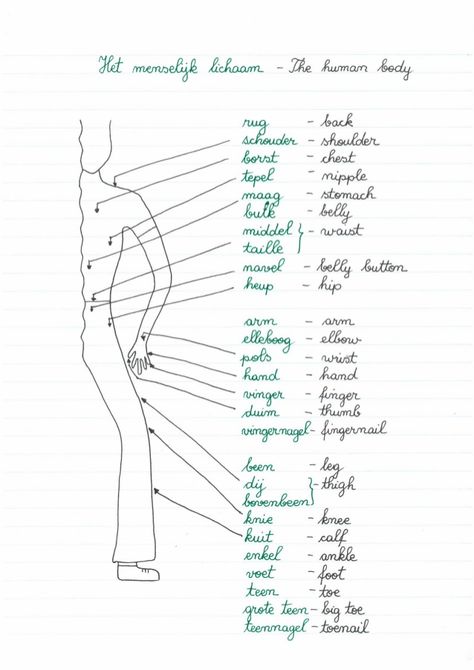 Het menselijk lichaam - The human body
rug - back
schouder - shoulder
borst - chest
tepel - nipple
maag - stomach
buik - belly
middel } - waist
taille
navel - belly button
heup - hip
arm - arm
elleboog - elbow
pols - wrist
hand - hand
vinger - finger
duim - thumb
vingernagel - fingernail
been - leg
dij } - thigh
bovenbeen
knie - knee
kuit - calf
enkel - ankle
voet - foot
teen - toe
grote teen - big toe
teennagel - toenail